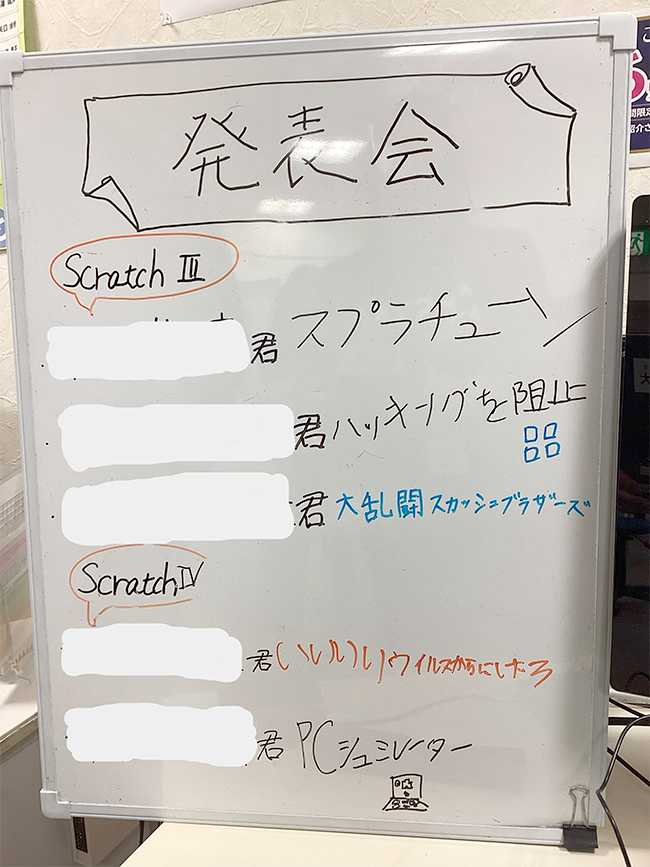 発表会
Scratch III
君 スプラチューン
君 ハッキングを阻止
君 大乱闘スカッシュブラザーズ
Scratch IV
君
君 PCシュミレーター